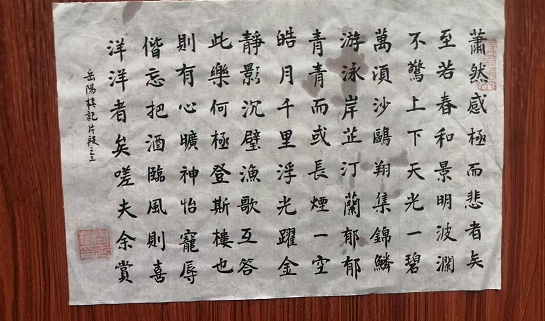 蕭然感極而悲者矣
至若春和景明波瀾
不驚上下天光一碧
萬頃沙鷗翔集錦鱗
游泳岸芷汀蘭郁郁
青青而或長煙一空
皓月千里浮光躍金
靜影沉璧漁歌互答
此樂何極登斯樓也
則有心曠神怡寵辱
偕忘把酒臨風則喜
洋洋者矣嗟夫余賞
岳陽樓記片段之三